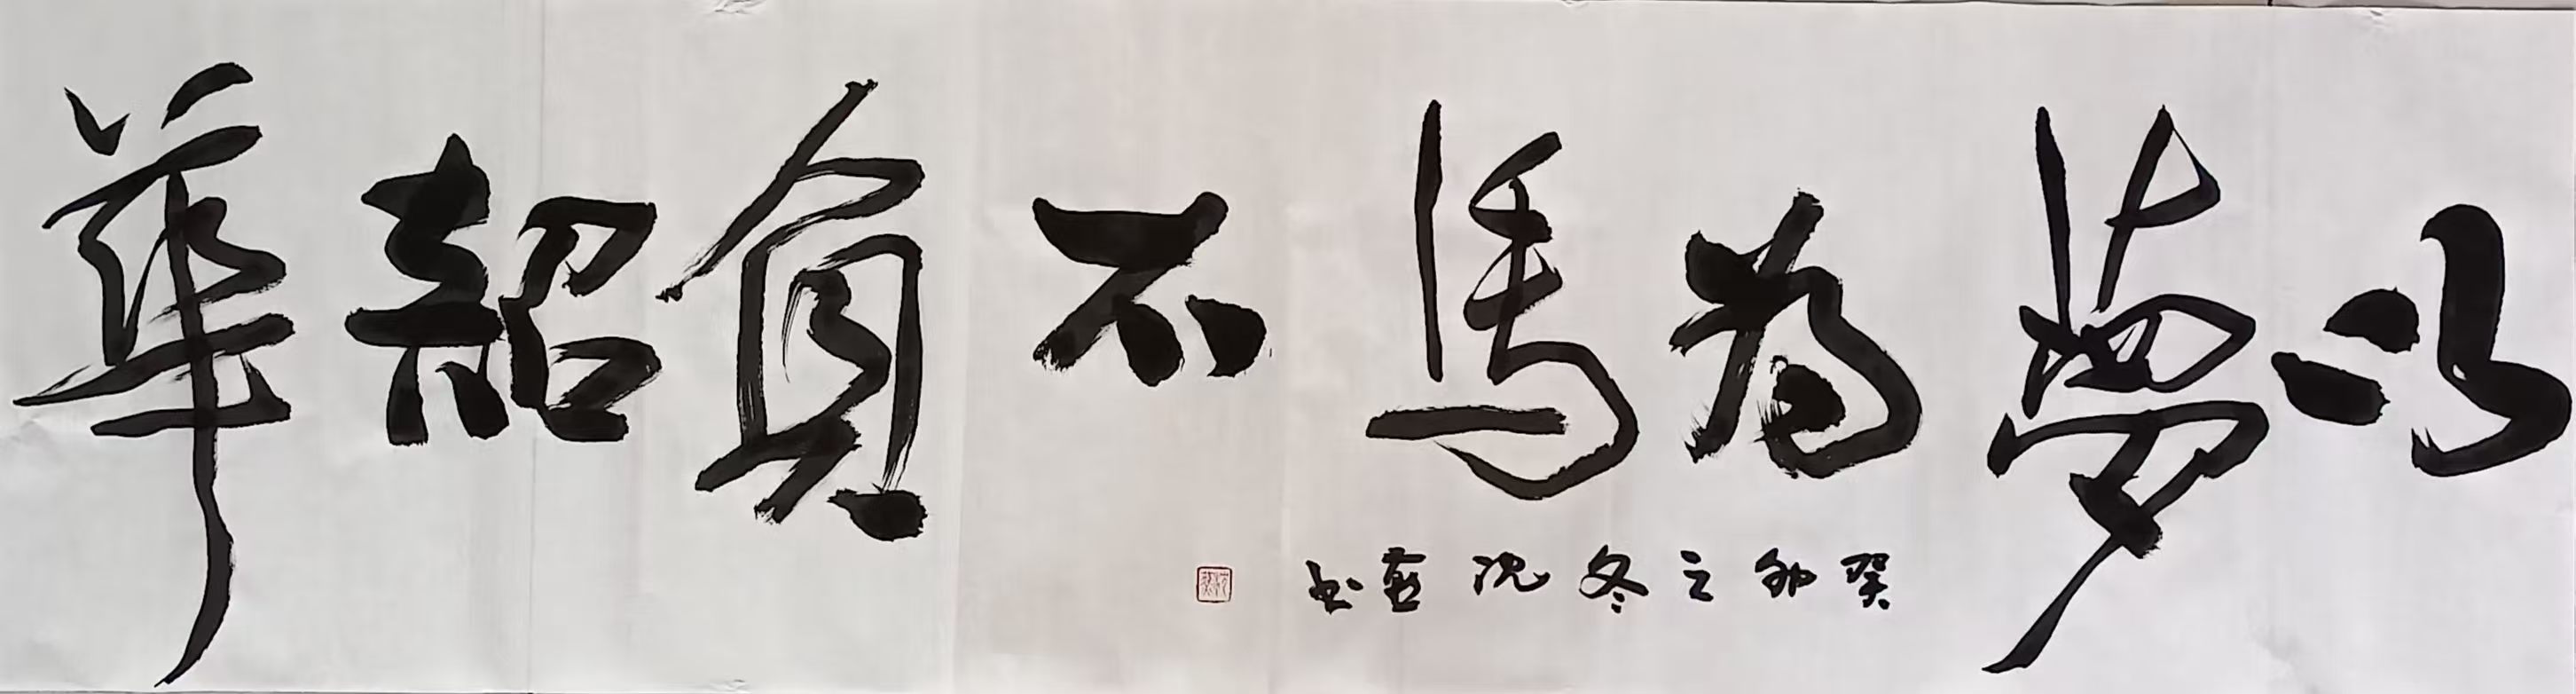 以夢為馬不負韶華
癸卯之冬沈燕书